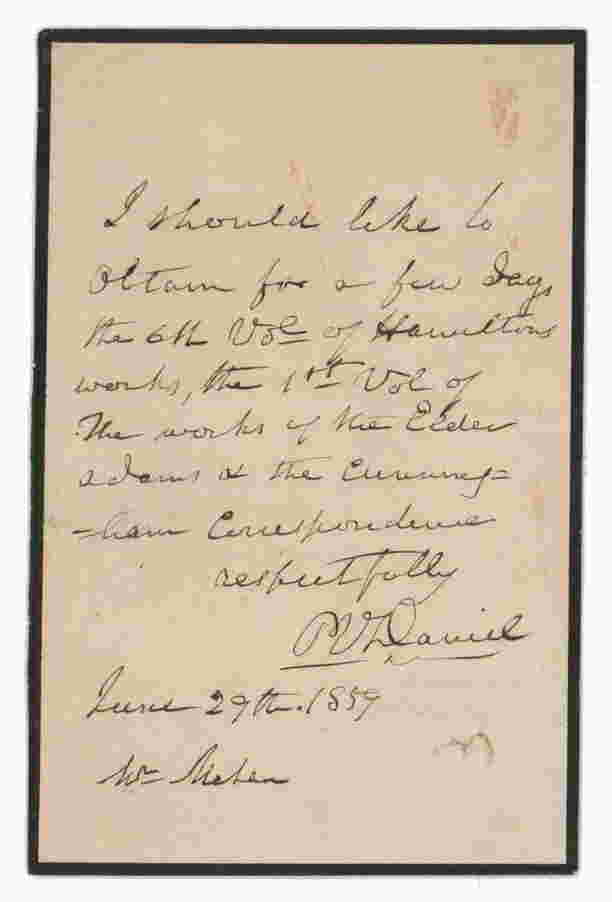 I should like to
obtain for a few days
the 6th Vol of Hamiltons
works, the 1st Vol of
the works of the Elder
Adams & the Cunning=
=ham Correspondence
respectfully
P V Daniel
June 29th. 1859
Mr